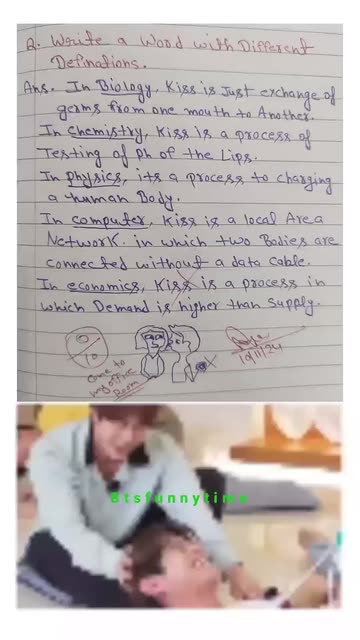 Q. Write a Word with Different
Definations.
Ans. In Biology, Kiss is Just exchange of
germs from one mouth to Another.
In Chemistry, Kiss is a process of
Testing of Ph of the Lips.
In physics, its a process to charging
a human Body.
In computer, Kiss is a local Area
Network in which two Bodies are
connected without a data cable.
In economics, Kiss is a process in
which Demand is higher than supply.
0
10
Come to
my office
Room
10/11/24
Btsfunnytime